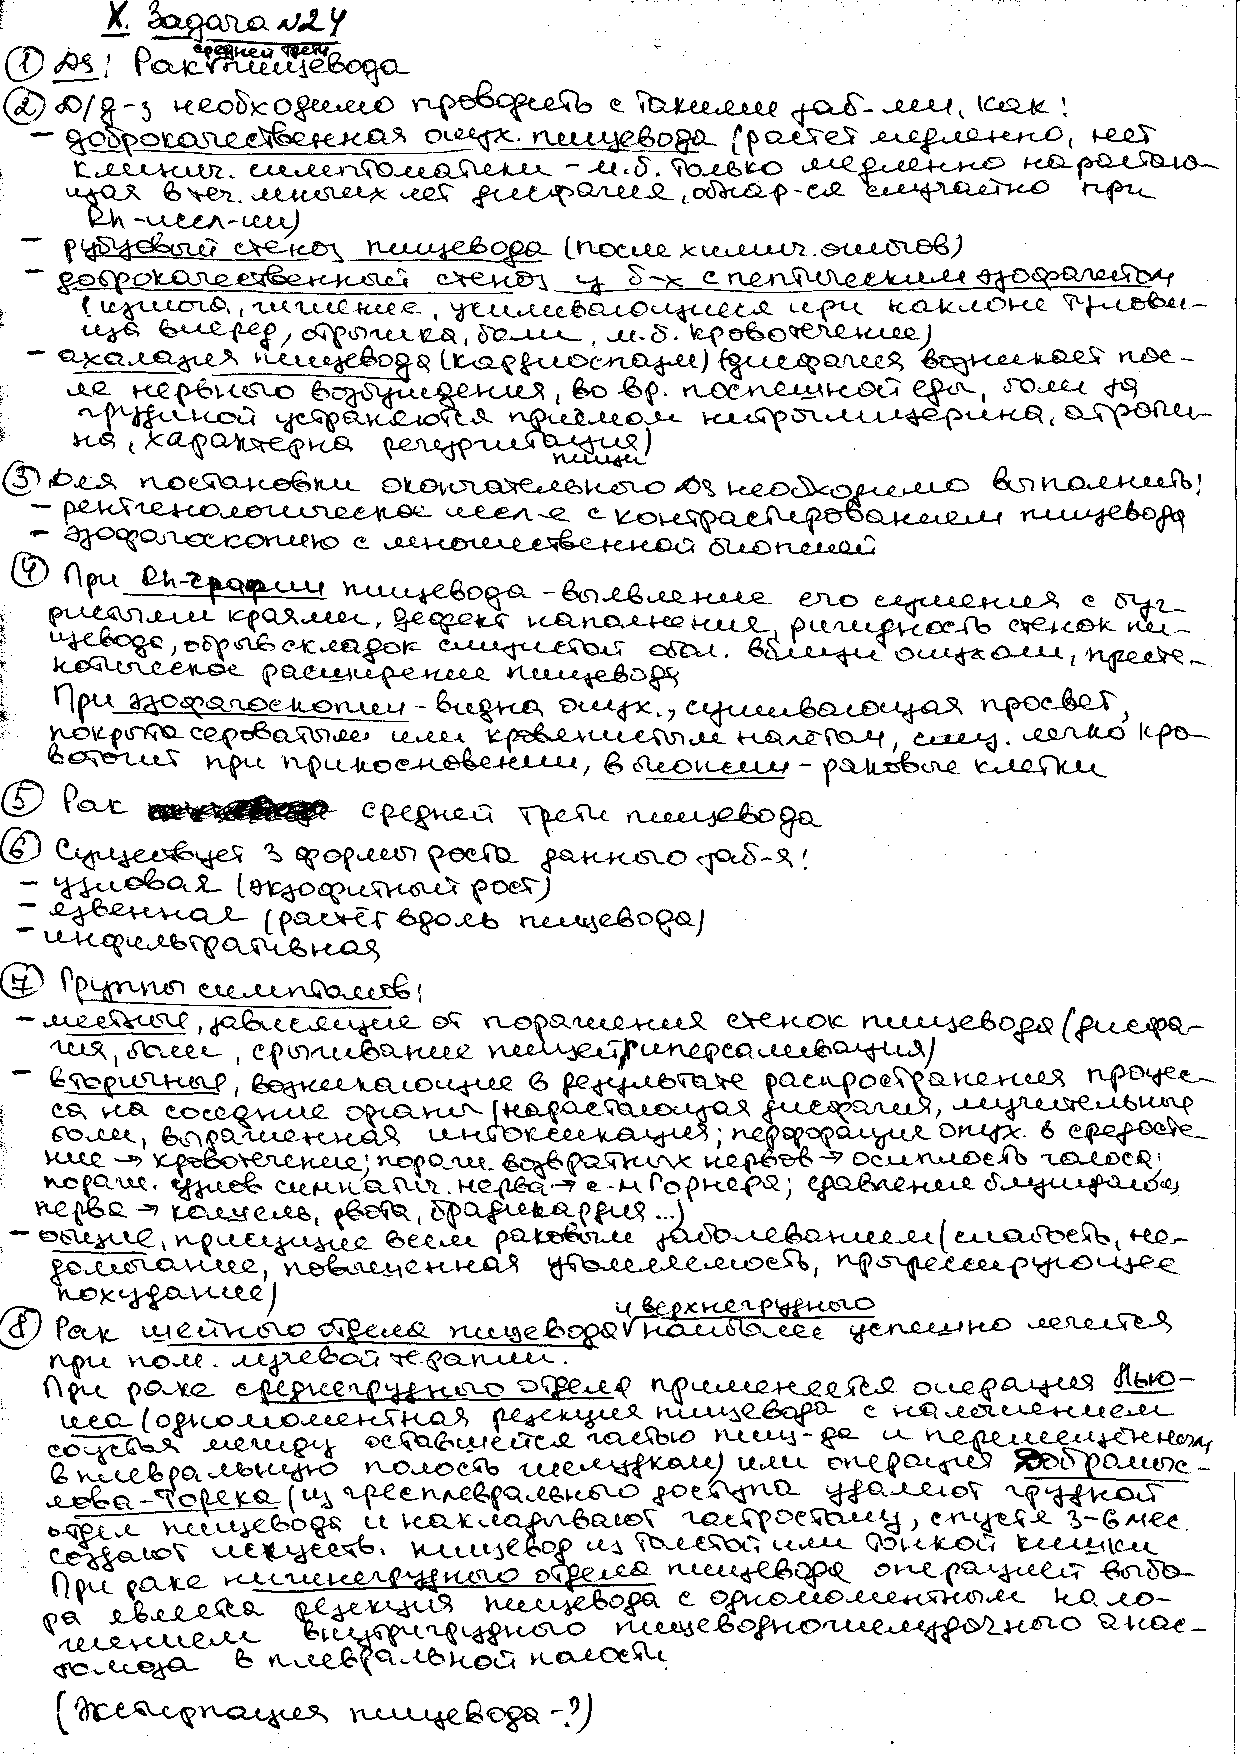 X. Задача №24
средней трети
① DS: Рак пищевода
② D/д-з необходимо проводить с такими заб-ми, как:
– доброкачественная опух. пищевода (растет медленно, нет
клинич. симптоматики – м.б. только медленно нарастаю-
щая в теч. многих лет дисфагия, обнар-ся случайно при
Rh-иссл-ии)
– рубцовый стеноз пищевода (после химич. ожогов)
– доброкачественный стеноз у б-х с пептическим эзофагитом
(изжога, жжение, усиливающиеся при наклоне тулови-
ща вперед, отрыжка, боли, м.б. кровотечение)
– ахалазия пищевода (кардиоспазм) (дисфагия возникает пос-
ле нервного возбуждения, во вр. поспешной еды, боли за
грудиной устраняются приемом нитроглицерина, атропи-
на, характерна регургитация)
пищи
③ Для постановки окончательного DS необходимо выполнить:
– рентгенологическое иссл-е с контрастированием пищевода
– эзофагоскопию с множественной биопсией
④ При Rh-графии пищевода – выявление его сужения с буг-
ристыми краями, дефект наполнения, ригидность стенок пи-
щевода, обрыв складок слизистой обол. вблизи опухоли, престе-
нотическое расширение пищевода
При эзофагоскопии – видна опух., суживающая просвет,
покрыта сероватым или кровянистым налетом, слиз. легко кро-
воточит при прикосновении, в биопсии – раковые клетки
⑤ Рак средней трети пищевода
⑥ Существует 3 формы роста данного заб-я:
– узловая (экзофитный рост)
– язвенная (растёт вдоль пищевода)
– инфильтративная
⑦ Группы симптомов:
– местные, зависящие от поражения стенок пищевода (дисфа-
гия, боли, срыгивание пищей, гиперсаливация)
– вторичные, возникающие в результате распространения процес-
са на соседние органы (нарастающая дисфагия, мучительные
боли, выраженная интоксикация; перфорация опух. в средосте-
ние → кровотечение; пораж. возвратных нервов → осиплость голоса;
пораж. узлов симпатич. нерва → с-м Горнера; сдавление блуждающ.
нерва → кашель, рвота, брадикардия...)
– общие, присущие всем раковым заболеваниям (слабость, не-
домогание, повышенная утомляемость, прогрессирующее
похудание)
и верхнегрудного
⑧ Рак шейного отдела пищевода наиболее успешно лечится
при пом. лучевой терапии.
При раке среднегрудного отдела применяется операция Лью-
иса (одномоментная резекция пищевода с наложением
соустья между оставшейся частью пищ-да и перемещенном
в плевральную полость желудкам) или операция Добромыс-
лова-Торека (из чресплеврального доступа удаляют грудной
отдел пищевода и накладывают гастростому, спустя 3-6 мес.
создают искусств. пищевод из толстой или тонкой кишки
При раке нижнегрудного отдела пищевода операцией выбо-
ра является резекция пищевода с одномоментным нало-
жением внутригрудного пищеводножелудочного анас-
томоза в плевральной полости.
(Экстирпация пищевода -?)